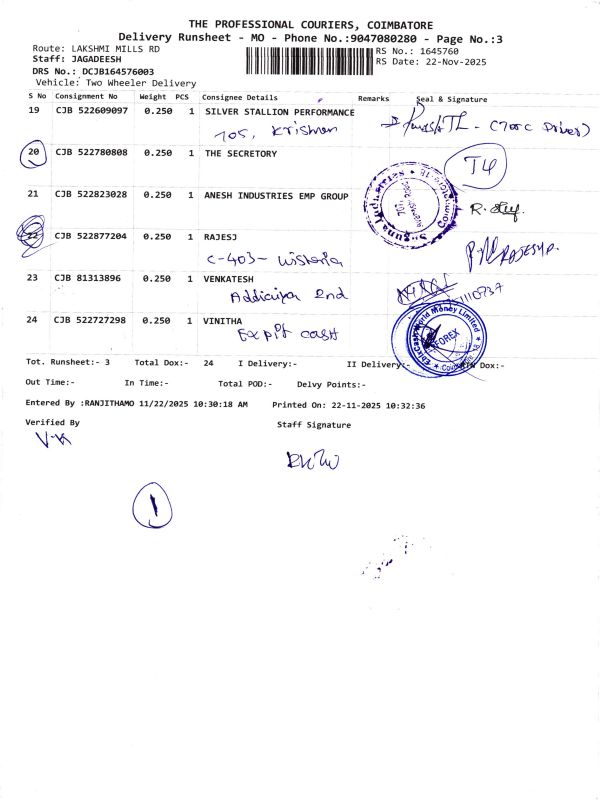 THE PROFESSIONAL COURIERS, COIMBATORE
Delivery Runsheet - MO - Phone No.:9047080280 - Page No.:3
Route: LAKSHMI MILLS RD
RS No.: 1645760
Staff: JAGADEESH
RS Date: 22-Nov-2025
DRS No.: DCJB164576003
Vehicle: Two Wheeler Delivery
S No Consignment No Weight PCS Consignee Details Remarks Seal & Signature
19 CJB 522609097 0.250 1 SILVER STALLION PERFORMANCE
705, Krishnan
(705C Driver)
20 CJB 522780808 0.250 1 THE SECRETARY
T4
21 CJB 522823028 0.250 1 ANESH INDUSTRIES EMP GROUP
22 CJB 522877204 0.250 1 RAJESJ
C-403- Wisteria
RAJESH.P.
23 CJB 81313896 0.250 1 VENKATESH
2nd
24 CJB 522727298 0.250 1 VINITHA
cash
EbixCash World Money Limited
FOREX
Tot. Runsheet:- 3 Total Dox:- 24 I Delivery:- II Delivery:- Dox:-
Out Time:- In Time:- Total POD:- Delvy Points:-
Entered By :RANJITHAMO 11/22/2025 10:30:18 AM Printed On: 22-11-2025 10:32:36
Verified By Staff Signature
V.K
1